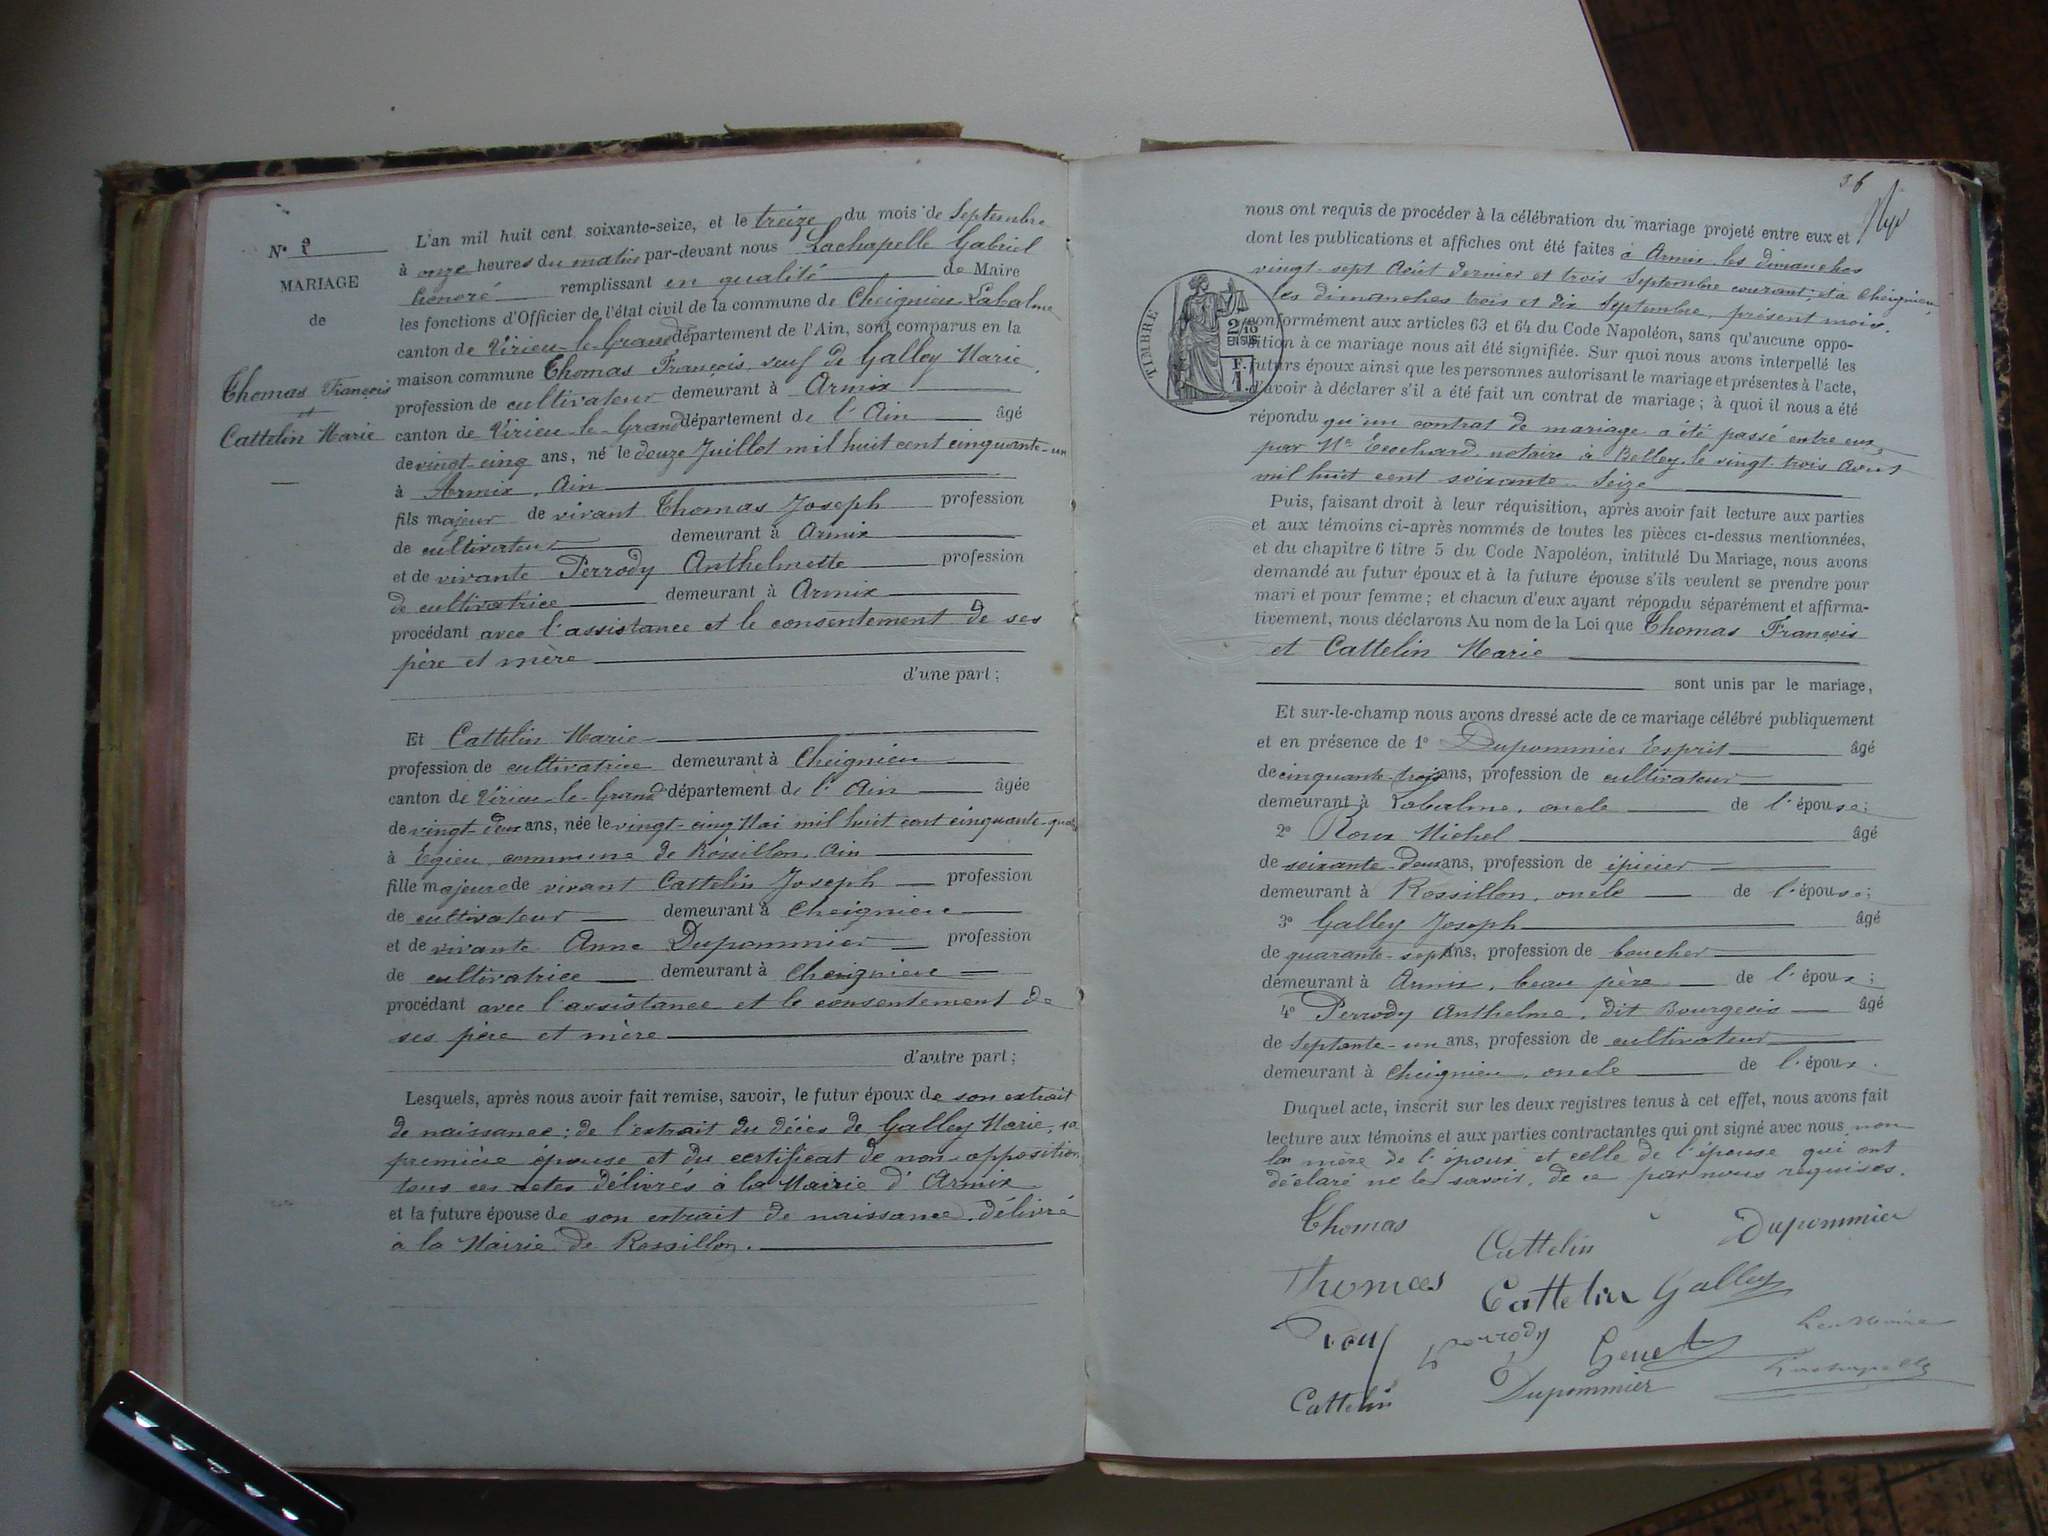 N° 2
MARIAGE
de
Thomas François
et
Cattelin Marie
L'an mil huit cent soixante-seize, et le treize du mois de Septembre
à onze heures du matin par-devant nous Lachapelle Gabriel
honoré remplissant en qualité de Maire
les fonctions d'Officier de l'état civil de la commune de Cheignieu-Labalme
canton de Virieu-le-Grand département de l'Ain, sont comparus en la
maison commune Thomas François, veuf de Galley Marie,
profession de cultivateur demeurant à Armix
canton de Virieu-le-Grand département de l'Ain âgé
de vingt-cinq ans, né le douze Juillet mil huit cent cinquante-un
à Armix, Ain
fils majeur de vivant Thomas Joseph profession
de cultivateur demeurant à Armix
et de vivante Perrody Anthelmette profession
de cultivatrice demeurant à Armix
procédant avec l'assistance et le consentement de ses
père et mère
d'une part;
Et Cattelin Marie
profession de cultivatrice demeurant à Cheignieu
canton de Virieu-le-Grand département de l'Ain âgée
de vingt-deux ans, née le vingt-cinq Mai mil huit cent cinquante-quatre
à Egieu commune de Rossillon, Ain
fille majeure de vivant Cattelin Joseph profession
de cultivateur demeurant à Cheignieu
et de vivante Anne Dupommier profession
de cultivatrice demeurant à Cheignieu
procédant avec l'assistance et le consentement de
ses père et mère
d'autre part;
Lesquels, après nous avoir fait remise, savoir, le futur époux de son extrait
de naissance; de l'extrait du décès de Galley Marie, sa
première épouse et du certificat de non-opposition
tous ces actes délivrés à la Mairie d'Armix
et la future épouse de son extrait de naissance, délivré
à la Mairie de Rossillon.
36
nous ont requis de procéder à la célébration du mariage projeté entre eux et
dont les publications et affiches ont été faites à Armix les dimanches
vingt-sept Août dernier et trois Septembre courant; et à Cheignieu,
les dimanches trois et dix Septembre, présent mois.
TIMBRE
2/10
EN SUS
F.
1.
conformément aux articles 63 et 64 du Code Napoléon, sans qu'aucune oppo-
sition à ce mariage nous ait été signifiée. Sur quoi nous avons interpellé les
futurs époux ainsi que les personnes autorisant le mariage et présentes à l'acte,
d'avoir à déclarer s'il a été fait un contrat de mariage; à quoi il nous a été
répondu qu'un contrat de mariage a été passé entre eux
par Me notaire à Belley, le vingt-trois Août
mil huit cent soixante-Seize
Puis, faisant droit à leur réquisition, après avoir fait lecture aux parties
et aux témoins ci-après nommés de toutes les pièces ci-dessus mentionnées,
et du chapitre 6 titre 5 du Code Napoléon, intitulé Du Mariage, nous avons
demandé au futur époux et à la future épouse s'ils veulent se prendre pour
mari et pour femme; et chacun d'eux ayant répondu séparément et affirma-
tivement, nous déclarons Au nom de la Loi que Thomas François
et Cattelin Marie
sont unis par le mariage,
Et sur-le-champ nous avons dressé acte de ce mariage célébré publiquement
et en présence de 1° Dupommier Esprit âgé
de cinquante-trois ans, profession de cultivateur
demeurant à Labalme, oncle de l'épouse;
2° Roux Michel âgé
de soixante-deux ans, profession de épicier
demeurant à Rossillon, oncle de l'épouse;
3° Galley Joseph âgé
de quarante-sept ans, profession de boucher
demeurant à Armix, beau père de l'époux;
4° Perrody Anthelme, dit Bourgeois âgé
de Septante-un ans, profession de cultivateur
demeurant à Cheignieu, oncle de l'époux.
Duquel acte, inscrit sur les deux registres tenus à cet effet, nous avons fait
lecture aux témoins et aux parties contractantes qui ont signé avec nous non
la mère de l'époux et celle de l'épouse qui ont
déclaré ne le savoir, de ce par nous requises.
Thomas
Cattelin
Dupommier
Thomas
Cattelin
Galley
Roux
Perrody
Genet
Le Maire
Cattelin
Dupommier
Lachapelle